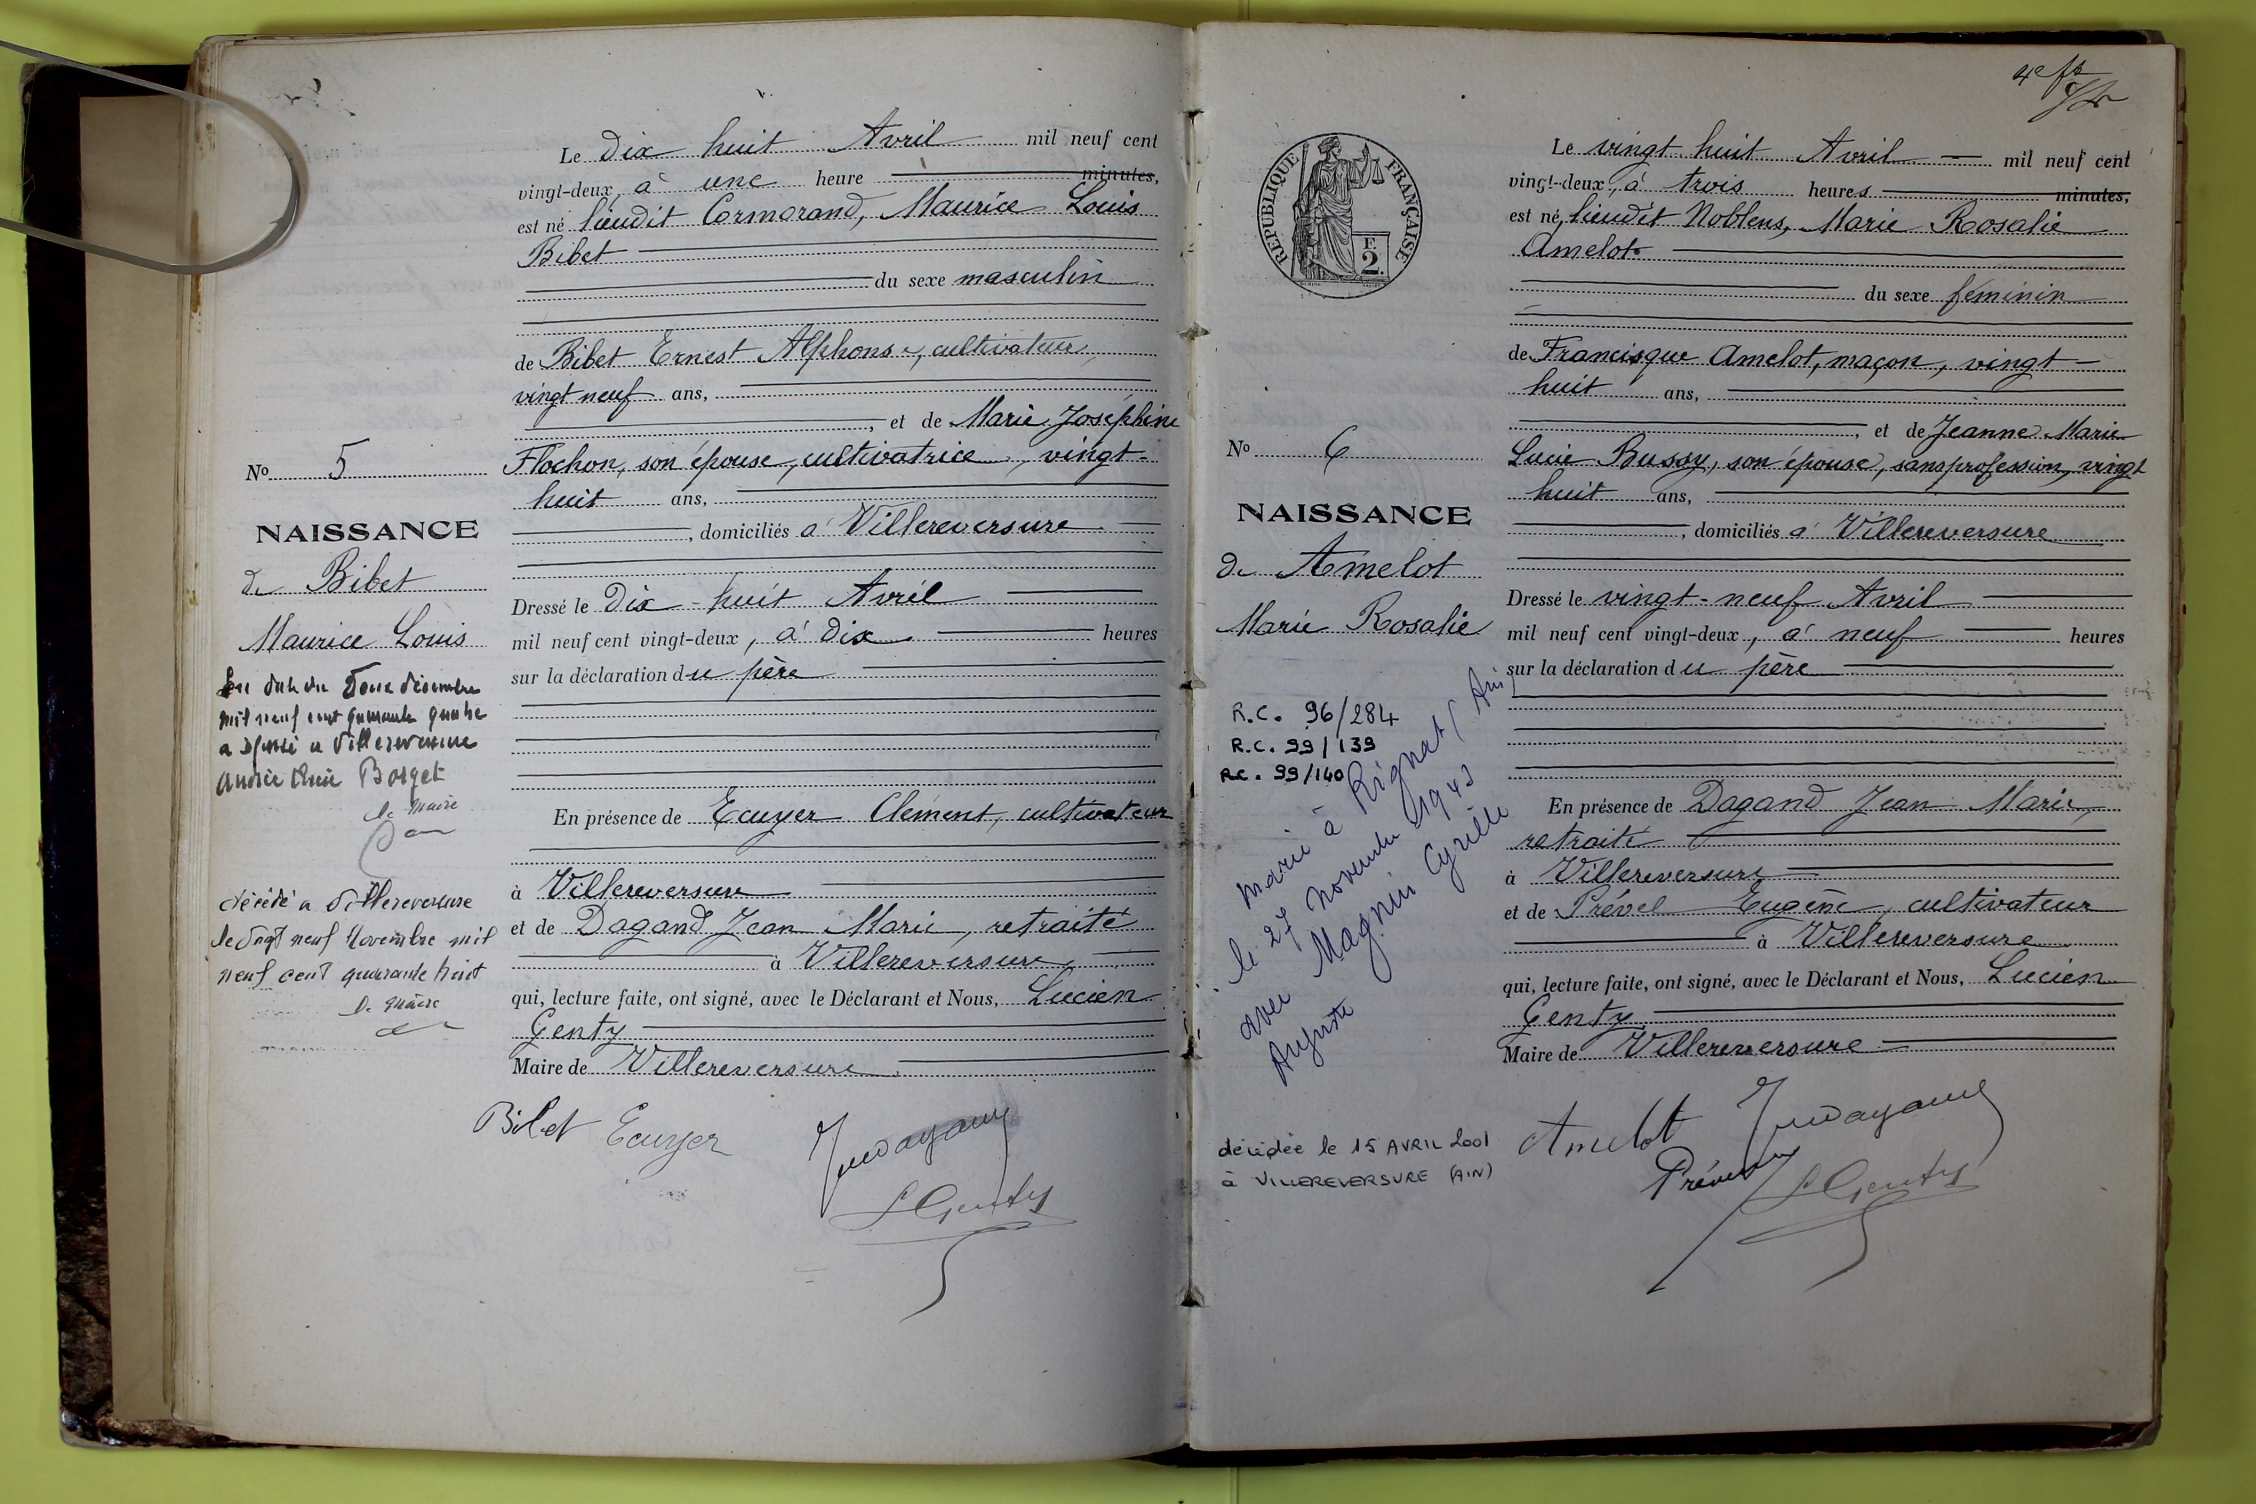 Le dix huit Avril mil neuf cent
vingt-deux, à une heure minutes,
est né lieudit Cormorand, Maurice Louis
Bibet
du sexe masculin
de Bibet Ernest Alphonse, cultivateur,
vingt neuf ans,
, et de Marie Joséphine
Flochon, son épouse, cultivatrice, vingt-
huit ans,
, domiciliés à Villereversure
Dressé le Dix-huit Avril
mil neuf cent vingt-deux, à dix heures
sur la déclaration du père
En présence de Ecuyer Clément, cultivateur
à Villereversure
et de Dagand Jean Marie, retraité
à Villereversure
qui, lecture faite, ont signé, avec le Déclarant et Nous, Lucien
Genty
Maire de Villereversure
Bibet Ecuyer
LGenty
No 5
NAISSANCE
de Bibet
Maurice Louis
décembre
mil neuf cent quarante quatre
a épousé a Villereversure
Le Maire
décédé a Villereversure
le vingt neuf Novembre mil
neuf cent quarante huit
Le Maire
4e ft
RÉPUBLIQUE FRANÇAISE
F.
2.
No 6
NAISSANCE
de Amelot
Marie Rosalie
R.C. 96/284
R.C. 99/139
RC. 99/140
marié à Rignat (Ain)
le 27 Novembre 1943
avec Magnin Cyrille
Auguste
décédée le 15 AVRIL 2001
à VILLEREVERSURE (AIN)
Le vingt huit Avril mil neuf cent
vingt-deux, à trois heures minutes,
est né, lieudit Noblens, Marie Rosalie
Amelot
du sexe féminin
de Francisque Amelot, maçon, vingt-
huit ans,
, et de Jeanne Marie
Lucie Bussy, son épouse, sans profession, vingt
huit ans,
, domiciliés à Villereversure
Dressé le vingt-neuf Avril
mil neuf cent vingt-deux, à neuf heures
sur la déclaration du père
En présence de Dagand Jean Marie,
retraité
à Villereversure
et de Prével Eugène, cultivateur
à Villereversure
qui, lecture faite, ont signé, avec le Déclarant et Nous, Lucien
Genty
Maire de Villereversure
Amelot
Prével
LGenty